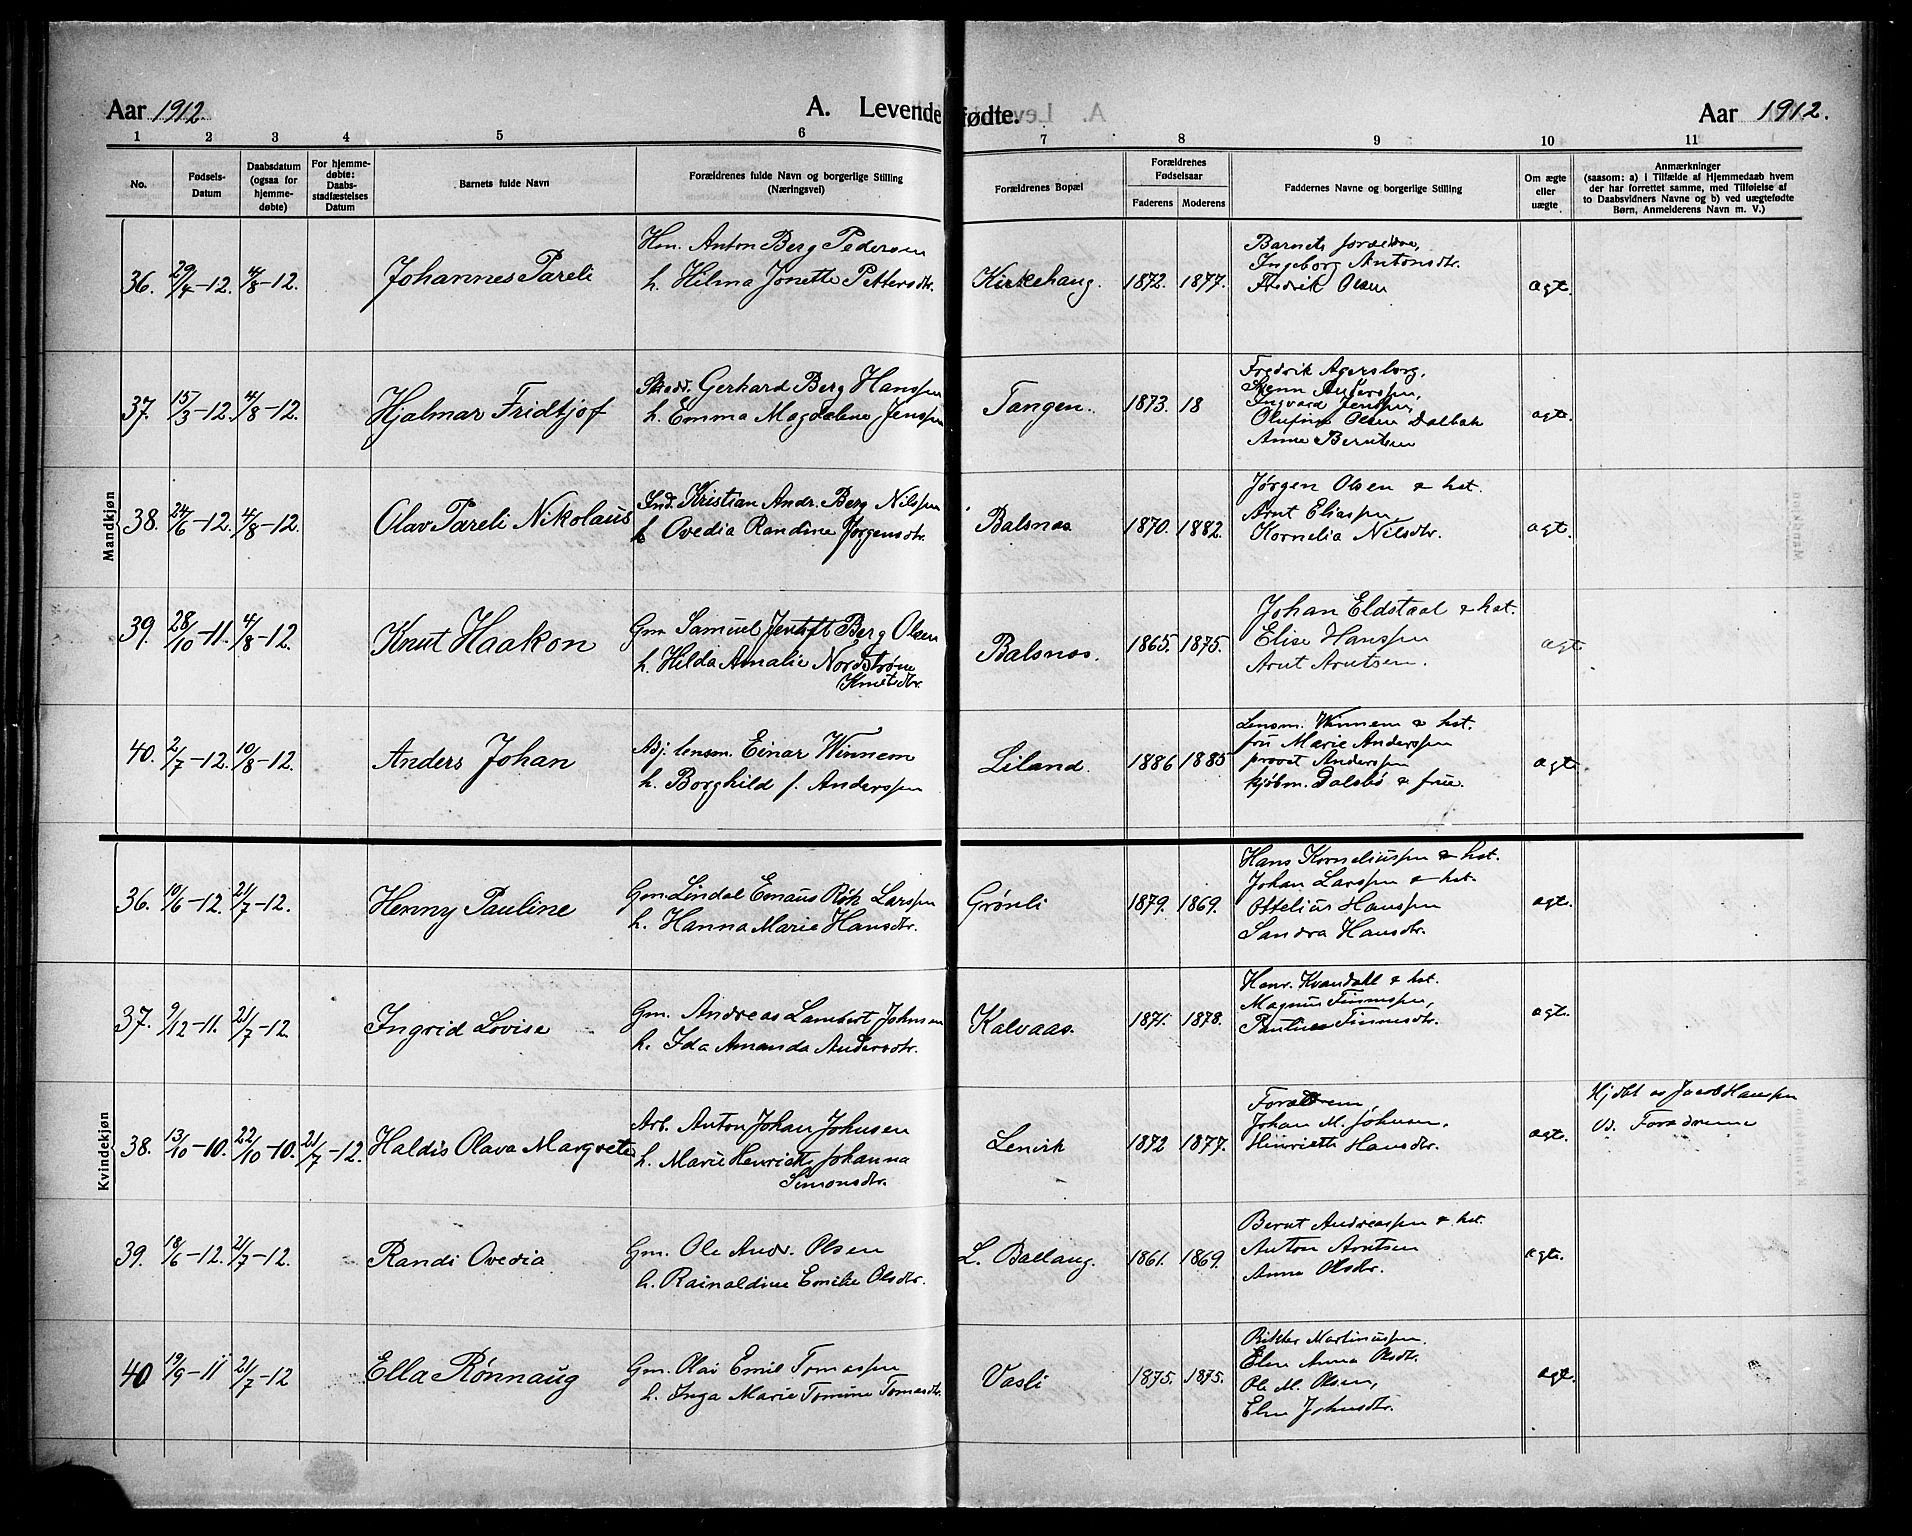 Aar 1912. A. Levendefødte. Aar 1912.
1 2 3 4 5 6 7 8 9 10 11
No.
Fødsels-
Datum
Daabsdatum
(ogsaa for
hjemme-
døbte)
For hjemme-
døbte:
Daabs-
stadfæstelses
Datum
Barnets fulde Navn
Forældrenes fulde Navn og borgerlige Stilling
(Næringsvei)
Forældrenes Bopæl
Forældrenes
Fødselsaar
Faderens Moderens
Faddernes Navne og borgerlige Stilling
Om ægte
eller
uægte
Anmærkninger
(saasom: a) i Tilfælde af Hjemmedaab hvem
der har forrettet samme, med Tilføielse af
to Daabsvidners Navne og b) ved uægtefødte
Børn, Anmelderens Navn m. V.)
Mandkjøn
36. 29/4-12. 4/8-12. Johannes Pareli
Hm. Anton Berg Pedersen
h. Hilma Jonette Pettersdtr.
Kirkehaug. 1872. 1877.
Barnets forældre,
Ingeborg Antonsdtr.
Fredrik Olsen
ægte.
37. 15/3-12. 4/8-12. Hjalmar Fridtjof
Gerhard Berg Hanssen
h. Emma Magdalene Jenssen
Tangen. 1873. 18
Fredrik Agersborg,
Anderssen,
Ingvard Jenssen,
Olufine Olsen Dalbak
Anne Berntsen
ægte.
38. 24/6-12. 4/8-12. Olav Pareli Nikolaus
Ind. Kristian Andr. Berg Nilssen
h. Ovedia Randine Jørgensdtr.
Balsnes 1870. 1882.
Jørgen Olsen & hst.
Arnt Eliassen,
Kornelia Nilsdtr.
ægt.
39. 28/10-11. 4/8-12. Knut Haakon
Gm. Samuel Jentoft Berg Olsen
h. Hilda Amalie Nordstrøm
Knutsdtr.
Balsnes. 1865. 1875.
Johan Eldstaal & hst.
Elise Hanssen
Arnt Arntsen.
ægt
40. 2/7-12. 10/8-12. Anders Johan
Adj. lensm. Einar Winnem
h. Borghild f. Anderssen
Liland. 1886 1885
Lensm. Winnem & hst.
fru Marie Anderssen
provst Anderssen
kjøbm. Dalsbø & frue.
ægte
Kvindekjøn
36. 10/6-12. 21/7-12. Henny Pauline
Gm. Lindal Emaus Røk Larssen
h. Hanna Marie Hansdtr.
Grønli 1879. 1869.
Hans Korneliussen & hst.
Johan Larssen & hst.
Ottelius Hanssen
Sandra Hansdtr.
ægt.
37. 9/12-11. 21/7-12. Ingrid Lovise
Gm. Andreas Lambert Johnsen
h. Ida Amanda Andersdtr.
Kalvaas. 1871. 1878.
Henr. Kvandahl & hst.
Magnus Finnessen,
Pauline Finnesdtr.
ægt.
38. 13/10-10. 22/10-10. 21/7-12. Haldis Olava Margrete
Arb. Anton Johan Johnsen
h. Marie Henriette Johanna
Simonsdtr.
Lenvik 1872 1877.
Forældrene,
Johan M. Johnsen,
Hinriette Hansdtr.
ægt.
Hjdbt av Jacob Hanssen
V. Forældrene
39. 18/6-12. 21/7-12. Randi Ovedia
Gm. Ole Andr. Olsen
h. Rainaldine Emilie Olsdtr.
L. Ballang. 1861. 1869.
Bernt Andreassen & hst.
Anton Arntsen
Anna Olsdtr.
ægte.
40 19/9-11 21/7-12 Ella Rønnaug
Gm. Olai Emil Tomassen
h. Inga Marie Tomine Tomasdtr.
Vasli 1875. 1875.
Rikter Martinussen,
Elen Anna Olsdtr.
Ole M. Olsen,
Elen Johnsdtr.
ægt.